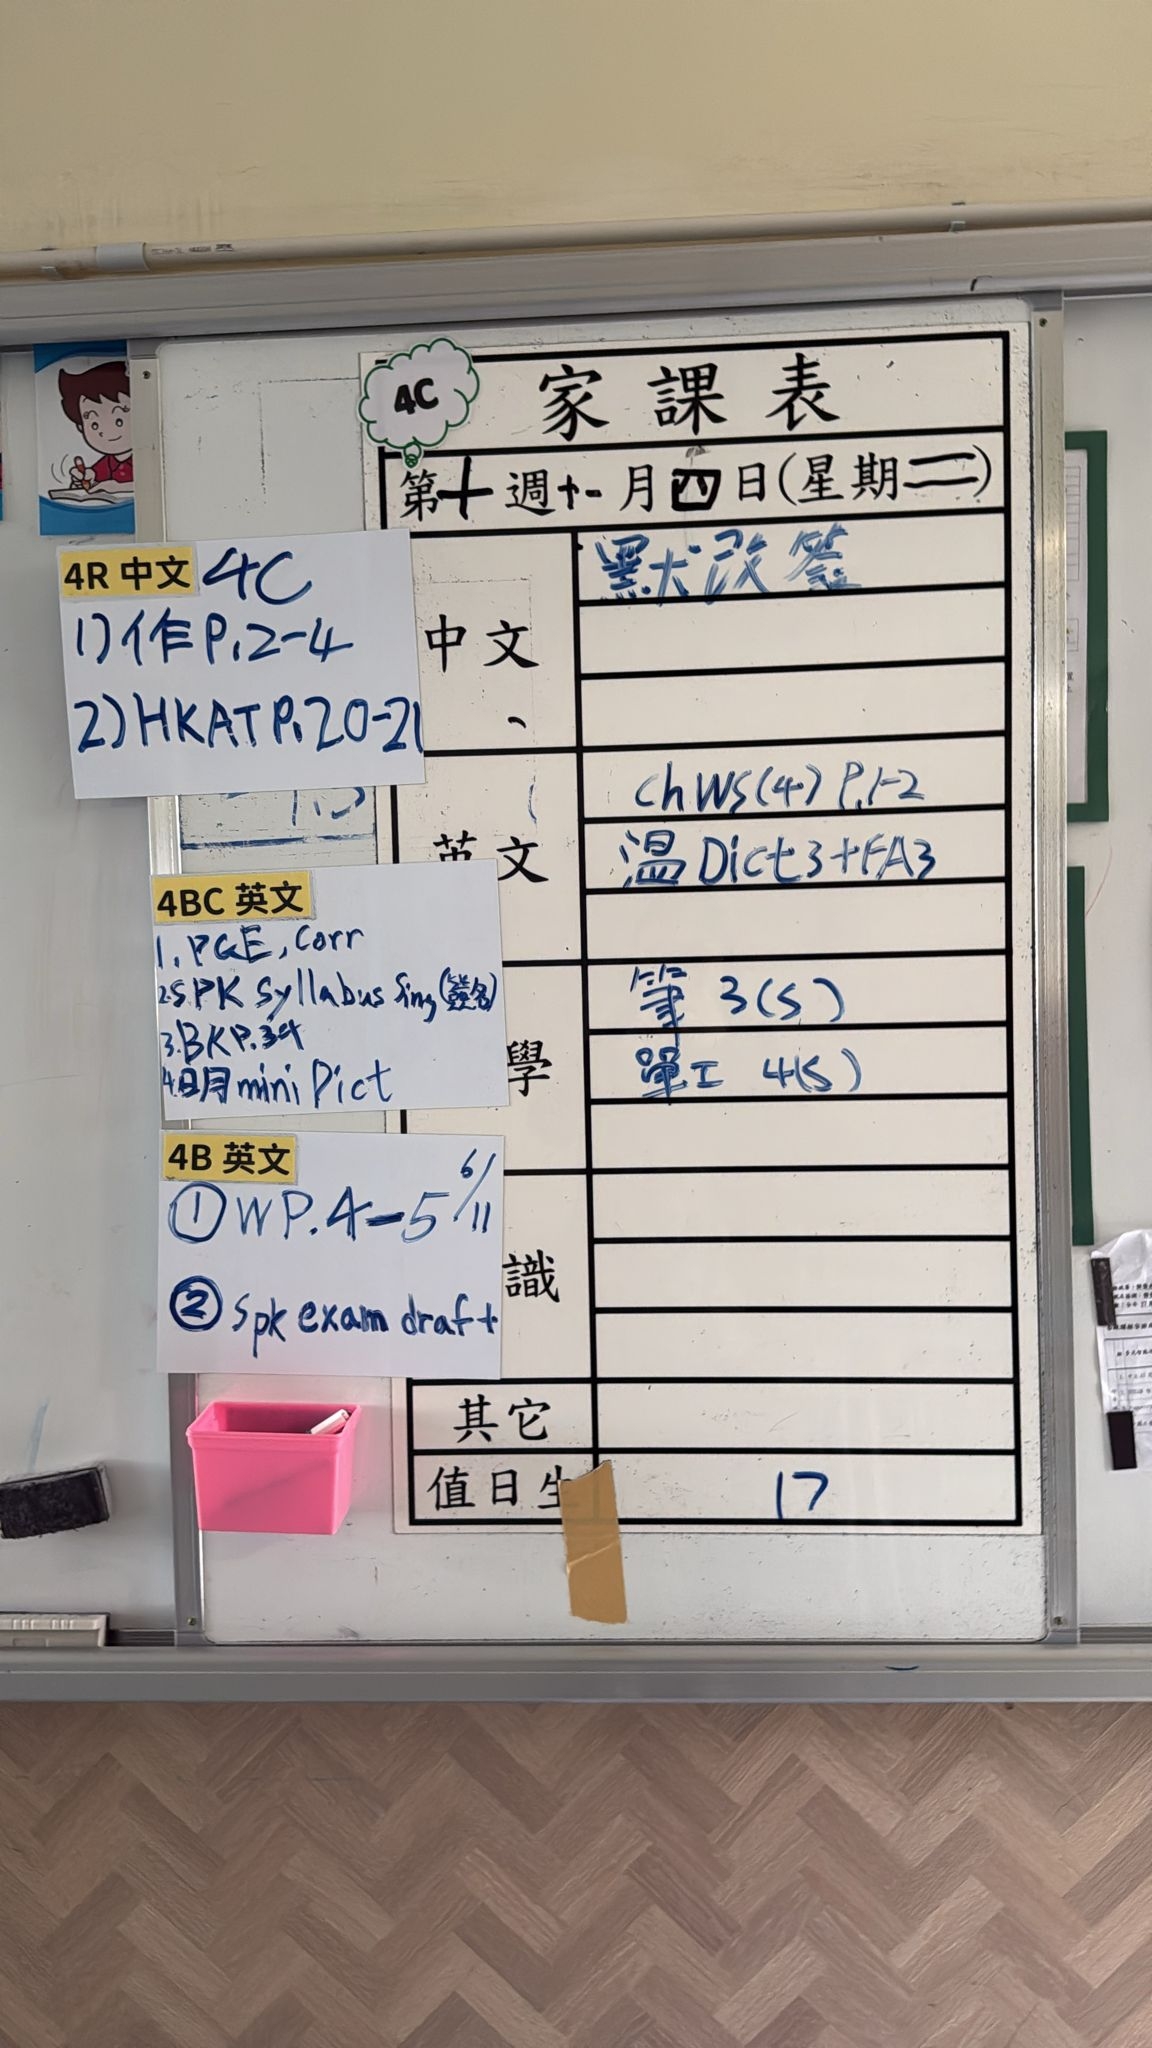 4C
家課表
第十週十一月四日(星期二)
4R 中文 4C
1)作P.2-4
2)HKAT P.20-21
中文
默改簽
英文
ChWS(4) P.1-2
溫Dict3+FA3
4BC 英文
1. PGE, Corr
2. SPK Syllabus Sing(簽名)
3. BKP.34
4. 明mini Dict
學
筆 3(S)
單工 4(S)
4B 英文
① WP.4-5 6/11
② Spk exam draft
識
其它
值日生
17